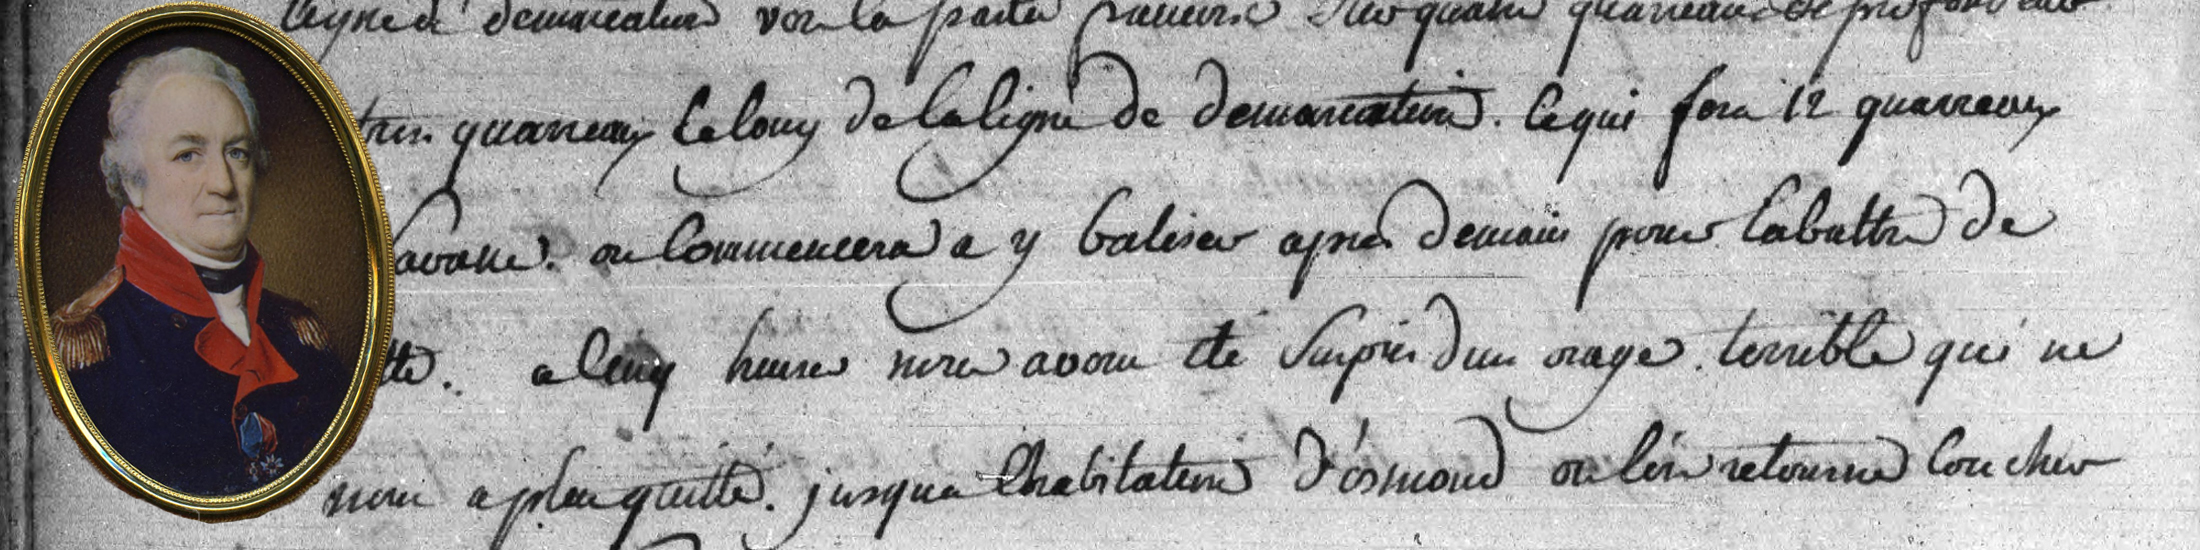 demarcation vers la partie sur quatre quarreaux de profondeur
trois quarreaux le long de la ligne de demarcation. ce qui fera 12 quarreaux
savane. on commencera a y baliser apres demain pour l'abattre de
a cinq heures nous avons été surpris d'un orage. terrible qui ne
nous a plus quitté. jusqua l'habitation d'ósmond ou l'on retourna coucher